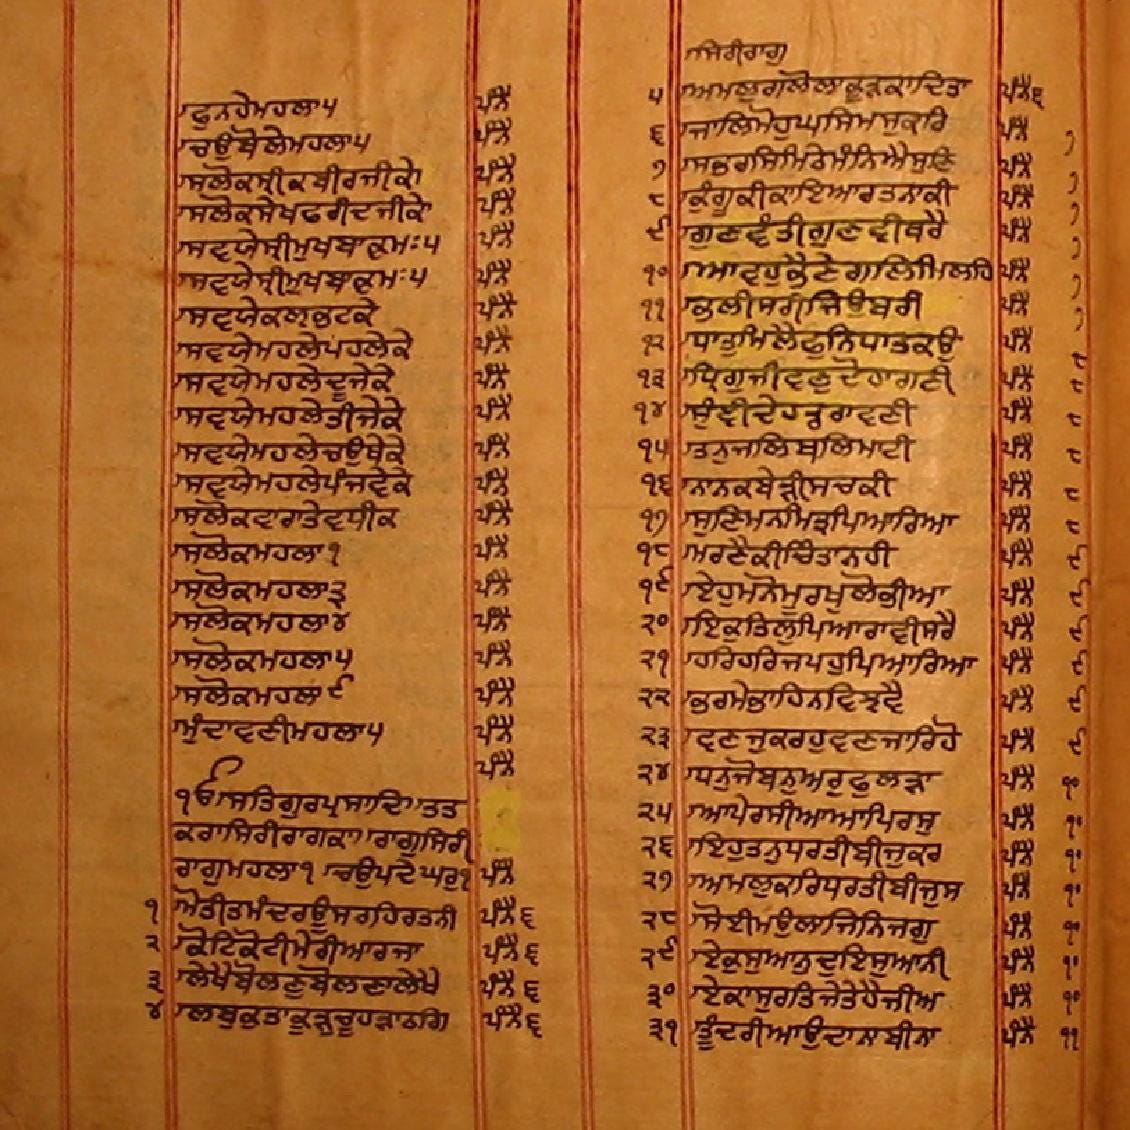 ਫੁਨਹੇਮਹਲਾ੫ ਪੰਨੈ
ਚਉਬੋਲੇਮਹਲਾ੫ ਪੰਨੈ
ਸਲੋਕਸ੍ਰੀਕਬੀਰਜੀਕੇ ਪੰਨੈ
ਸਲੋਕਸੇਖਫਰੀਦਜੀਕੇ ਪੰਨੈ
ਸਵਯੇਸ੍ਰੀਮੁਖਬਾਕ੍ਯਮਃ੫ ਪੰਨੈ
ਸਵਯੇਸ੍ਰੀਮੁਖਬਾਕ੍ਯਮਃ੫ ਪੰਨੈ
ਸਵਯੇਕਲ੍ਯਭਟਕੇ ਪੰਨੈ
ਸਵਯੇਮਹਲੇਪਹਲੇਕੇ ਪੰਨੈ
ਸਵਯੇਮਹਲੇਦੂਜੇਕੇ ਪੰਨੈ
ਸਵਯੇਮਹਲੇਤੀਜੇਕੇ ਪੰਨੈ
ਸਵਯੇਮਹਲੇਚਉਥੇਕੇ ਪੰਨੈ
ਸਵਯੇਮਹਲੇਪੰਜਵੇਕੇ ਪੰਨੈ
ਸਲੋਕਵਾਰਾਤੇਵਧੀਕ ਪੰਨੈ
ਸਲੋਕਮਹਲਾ੧ ਪੰਨੈ
ਸਲੋਕਮਹਲਾ੩ ਪੰਨੈ
ਸਲੋਕਮਹਲਾ੪ ਪੰਨੈ
ਸਲੋਕਮਹਲਾ੫ ਪੰਨੈ
ਸਲੋਕਮਹਲਾ੯ ਪੰਨੈ
ਮੁੰਦਾਵਣੀਮਹਲਾ੫ ਪੰਨੈ
ਪੰਨੈ
ੴਸਤਿਗੁਰਪ੍ਰਸਾਦਿ॥ਤਤ
ਕਰਾਸਿਰੀਰਾਗਕਾ॥ਰਾਗੁਸਿਰੀ
ਰਾਗੁਮਹਲਾ੧॥ਚਉਪਦੇਘਰੁ੧ ਪੰਨੈ
੧ ਮੋਤੀਤਮੰਦਰਊਸਰਹਿਰਤਨੀ ਪੰਨੈ੬
੨ ਕੋਟਿਕੋਟੀਮੇਰੀਆਰਜਾ ਪੰਨੈ੬
੩ ਲੇਖੈਬੋਲਣੁਬੋਲਣਾਲੇਖੈ ਪੰਨੈ੬
੪ ਲਬੁਕੁਤਾਕੂੜੁਚੂਹੜਾਠਗਿ ਪੰਨੈ੬
ਸਿਰੀਰਾਗੁ
੫ ਅਮਲੁਗਲੋਲਾਕੂੜਕਾਦਿਤਾ ਪੰਨੈ੬
੬ ਜਾਲਿਮੋਹੁਘਸਿਮਸੁਕਰਿ ਪੰਨੈ ੭
੭ ਸਭਰਸਿਮਿਠੇਮੰਨਿਐਸੁਣਿ ਪੰਨੈ ੭
੮ ਕੁੰਗੂਕੀਕਾਇਆਰਤਨਾਕੀ ਪੰਨੈ ੭
੯ ਗੁਣਵੰਤੀਗੁਣਵੀਥਰੈ ਪੰਨੈ ੭
੧੦ ਆਵਹੁਭੈਣੇਗਲਿਮਿਲਹਿ ਪੰਨੈ ੭
੧੧ ਭਲੀਸਰੀਜਿਉਬਰੀ ਪੰਨੈ ੭
੧੨ ਧਾਤੁਮਿਲੈਫੁਨਿਧਾਤਕਉ ਪੰਨੈ ੮
੧੩ ਧ੍ਰਿਗੁਜੀਵਣੁਦੋਹਾਗਣੀ ਪੰਨੈ ੮
੧੪ ਸੁੰਞੀਦੇਹਡਰਾਵਣੀ ਪੰਨੈ ੮
੧੫ ਤਨੁਜਾਲਿਬਾਲਿਮਾਟੀ ਪੰਨੈ ੮
੧੬ ਨਾਨਕਬੇੜੀਸਚਕੀ ਪੰਨੈ ੮
੧੭ ਸੁਣਿਮਨਮਿਤ੍ਰਪਿਆਰਿਆ ਪੰਨੈ ੮
੧੮ ਮਰਣੈਕੀਚਿੰਤਾਨਹੀ ਪੰਨੈ ੯
੧੯ ਏਹੁਮਨੋਮੂਰਖੁਲੋਭੀਆ ਪੰਨੈ ੯
੨੦ ਇਕੁਤਿਲੁਪਿਆਰਾਵੀਸਰੈ ਪੰਨੈ ੯
੨੧ ਹਰਿਹਰਿਜਪਹੁਪਿਆਰਿਆ ਪੰਨੈ ੯
੨੨ ਭਰਮੇਭਾਹਿਨਵਿਝਵੈ ਪੰਨੈ ੯
੨੩ ਵਣਜੁਕਰਹੁਵਣਜਾਰਿਹੋ ਪੰਨੈ ੯
੨੪ ਧਨੁਜੋਬਨੁਅਰੁਫੁਲੜਾ ਪੰਨੈ ੧੦
੨੫ ਆਪੇਰਸੀਆਆਪਿਰਸੁ ਪੰਨੈ ੧੦
੨੬ ਇਹੁਤਨੁਧਰਤੀਬੀਜੁਕਰ ਪੰਨੈ ੧੦
੨੭ ਅਮਲੁਕਰਿਧਰਤੀਬੀਜੁਸ ਪੰਨੈ ੧੦
੨੮ ਸੋਈਮਉਲਾਜਿਨਿਜਗੁ ਪੰਨੈ ੧੦
੨੯ ਏਕੁਸੁਆਨੁਦੁਇਸੁਆਨੀ ਪੰਨੈ ੧੦
੩੦ ਏਕਾਸੁਰਤਿਜੇਤੇਹੈਜੀਅ ਪੰਨੈ ੧੦
੩੧ ਤੂੰਦਰੀਆਉਦਾਨਾਬੀਨਾ ਪੰਨੈ ੧੧